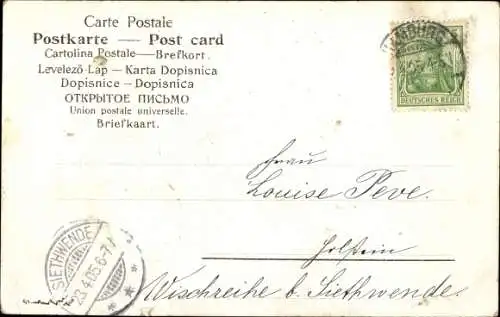 Carte Postale
Postkarte — Post card
Cartolina Postale — Brefkort.
Levelező-Lap — Karta Dopisnica
Dopisnice — Dopisnica
ОТКРЫТОЕ ПИСЬМО
Union postale universelle.
Briefkaart.
DEUTSCHES REICH
Frau
Louise Peve.
Holstein
Wischreihe b. Siethwende.
SIETHWENDE
23.4.05.6-7